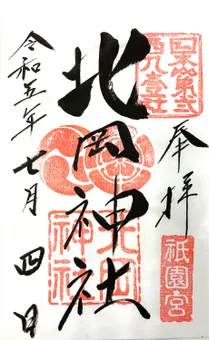 奉拝
祇園宮
北岡神社
北岡神社
令和五年七月四日